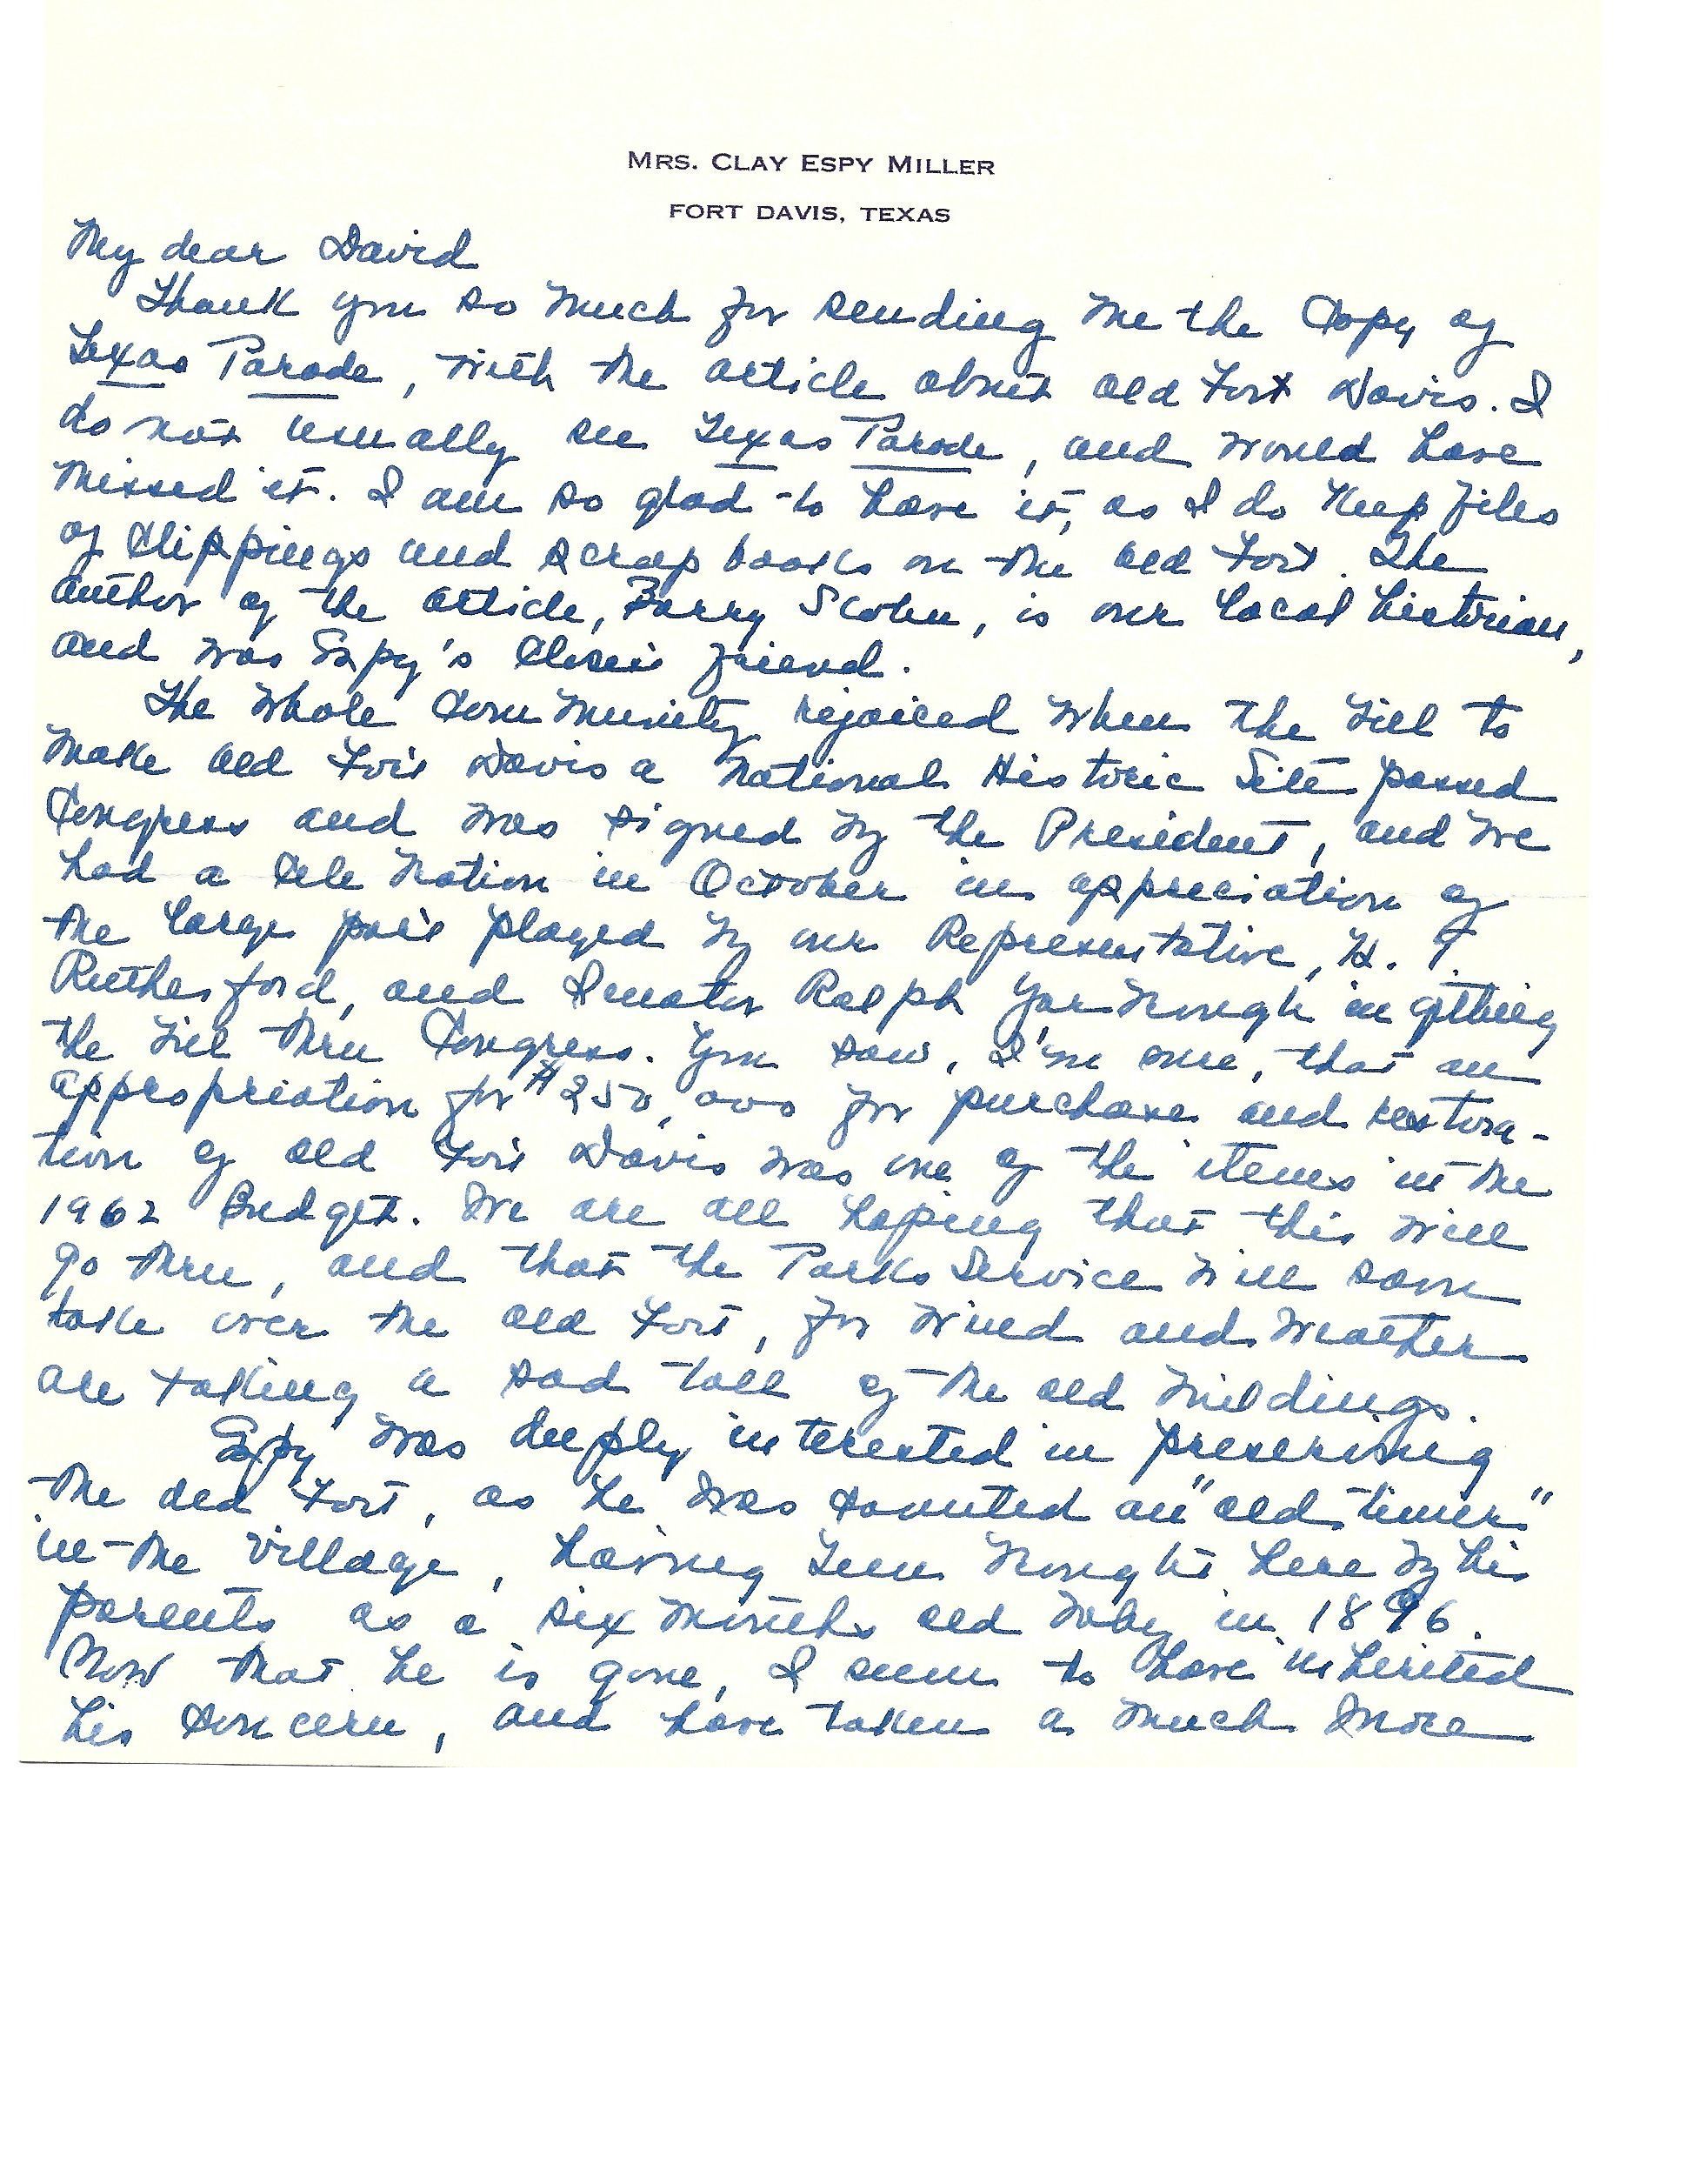 MRS. CLAY ESPY MILLER
FORT DAVIS, TEXAS
My dear David
Thank you so much for sending me the copy of
Texas Parade, with the article about old Fort Davis. I
do not usually see Texas Parade, and would have
missed it. I am so glad to have it, as I do keep files
of clippings and scrap books on the old Fort. The
author of the article, Barry Scobee, is our local historian,
and was Espy's closest friend.
The whole community rejoiced when the bill to
make old Fort Davis a National Historic Site passed
Congress and was signed by the President, and we
had a celebration in October in appreciation of
the large part played by our Representative, H. T.
Rutherford, and Senator Ralph Yarbrough in getting
the bill thru Congress. You saw, I'm sure, that an
appropriation for $250,000 for purchase and restora-
tion of old Fort Davis was one of the items in the
1962 Budget. We are all hoping that this will
go thru, and that the Parks Service will soon
take over the old Fort, for wind and weather
are taking a sad toll of the old buildings.
Espy was deeply interested in preserving
the old Fort, as he was counted an "old timer"
in the village, having been brought here by his
parents as a six months old baby in 1896.
Now that he is gone, I seem to have inherited
his concern, and have taken a much more